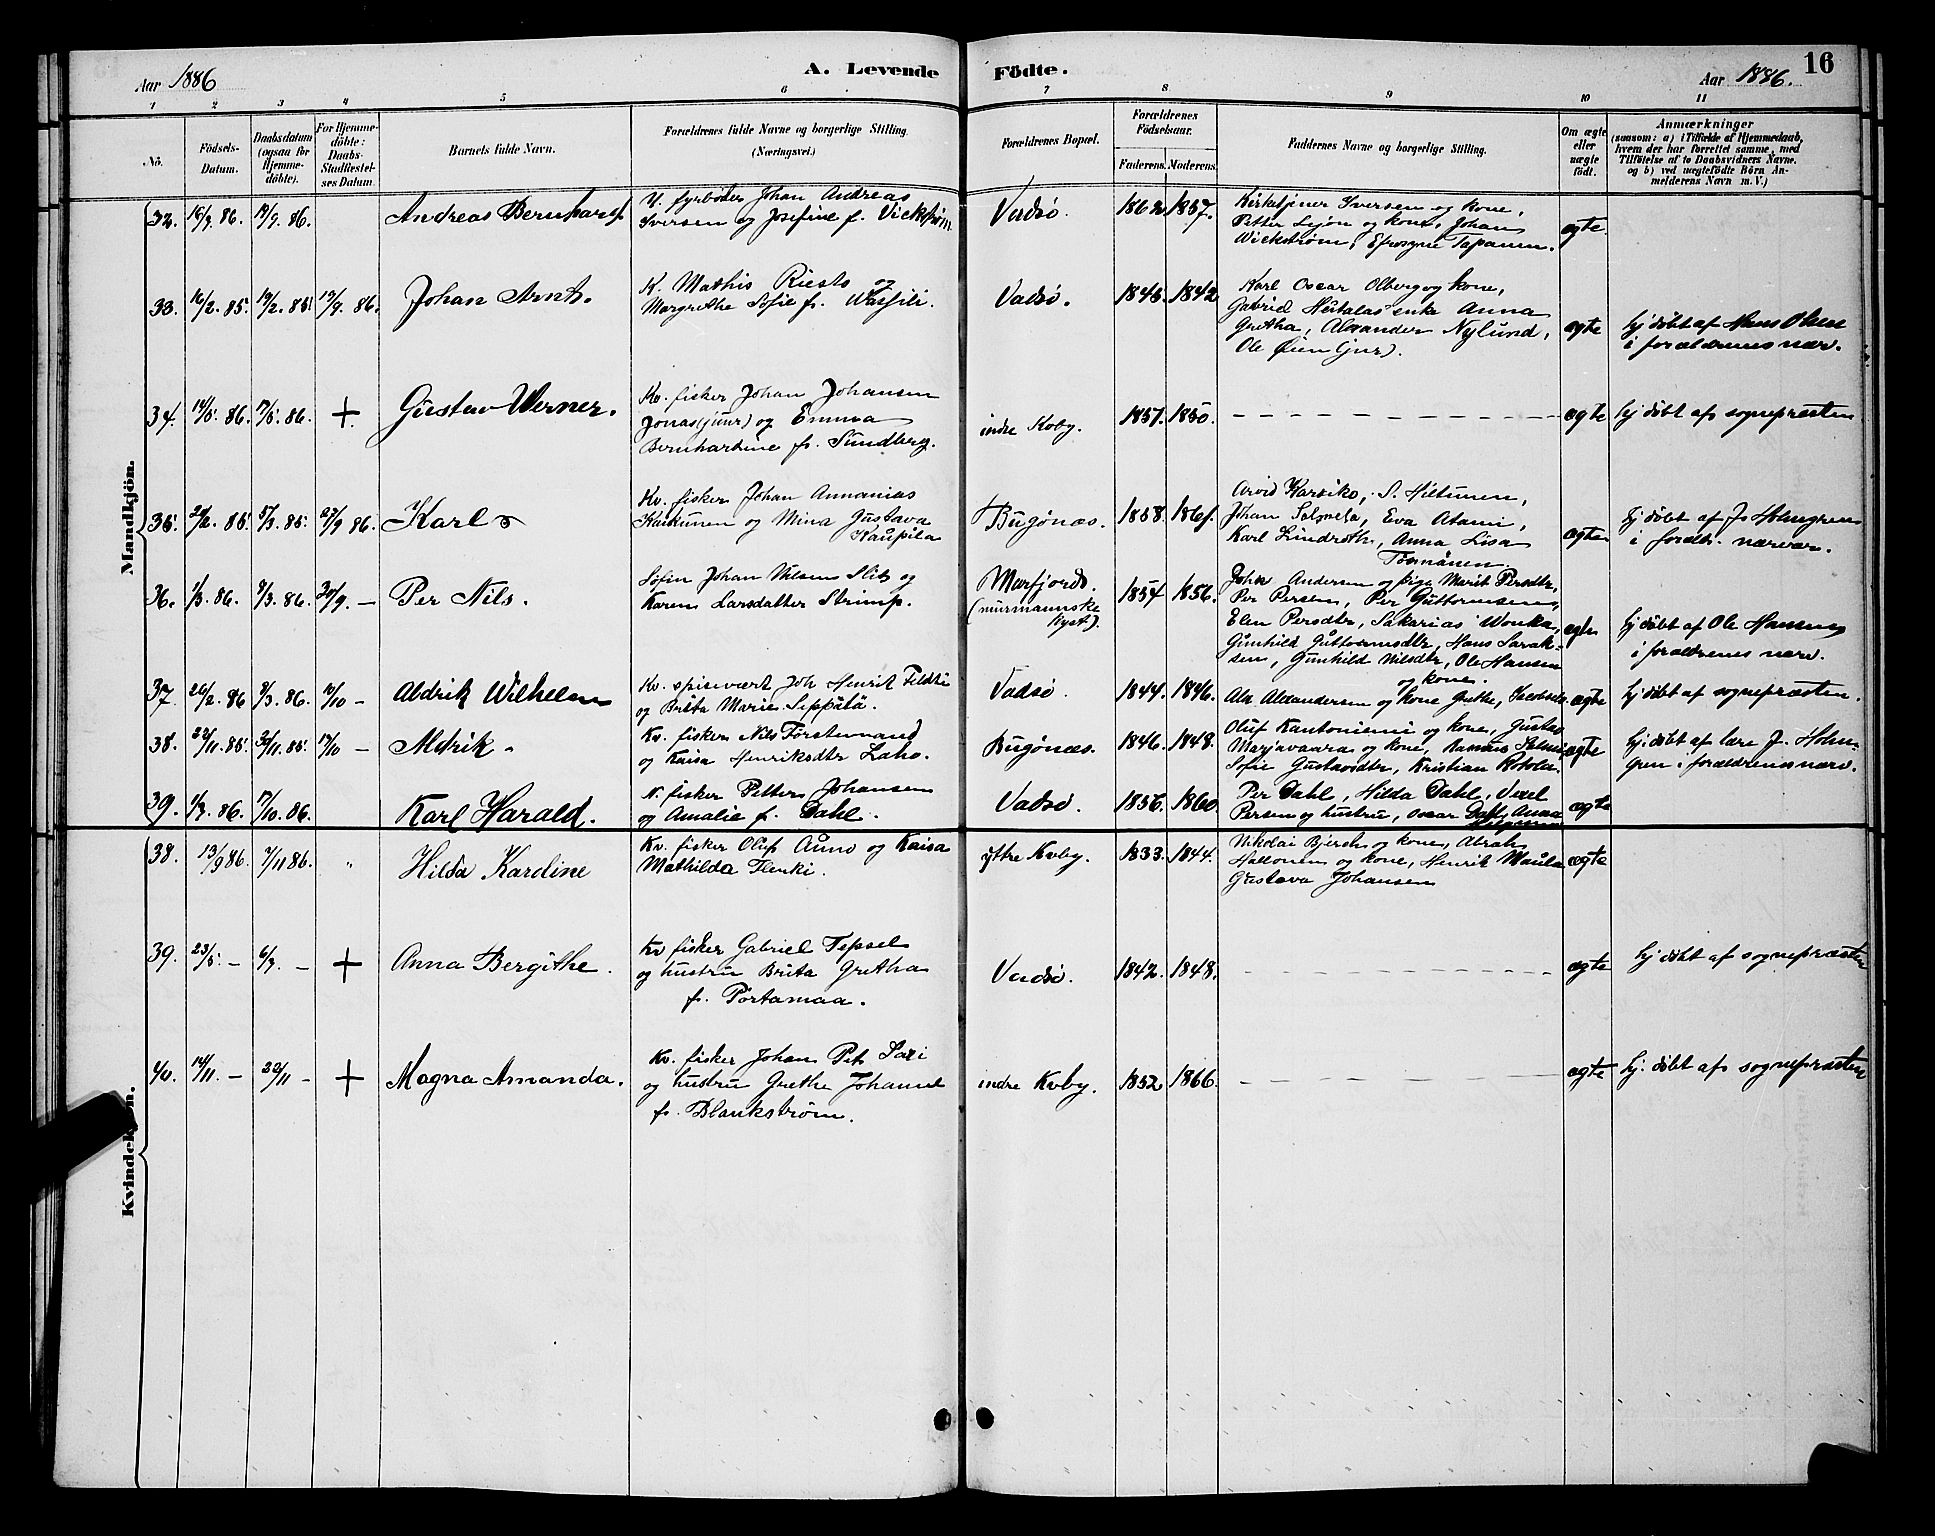 Aar 1886
A. Levende
Födte.
Aar 1886.
16
1 2 3 4 5 6 7 8 9 10 11
No.
Födsels-
Datum.
Daabsdatum
(ogsaa for
Hjemme-
döbte).
For Hjemme-
döbte:
Daabs-
Stadfæstel-
ses Datum.
Barnets fulde Navn.
Forældrenes fulde Navne og borgerlige Stilling.
(Næringsvei.)
Forældrenes Bopæl.
Forældrenes
Födselsaar.
Faderens. Moderens.
Faddernes Navne og borgerlige Stilling.
Om ægte
eller
uægte
födt.
Anmærkninger
(saasom: a) i Tilfælde af Hjemmedaab,
hvem der har forrettet samme, med
Tilföielse af to Daabsvidners Navne,
og b) ved uægtefödte Börn An-
melderens Navn m. V.)
Mandkjön.
32. 86. 86. Andreas Bernhard
fyrbøder Johan Andreas
Iversen og Josefine f. Vickstrøm
Vadsø. 1862 1857.
Kirketjener Iversen og kone,
Petter Sejon og kone, Johan
Wickstrøm, Efrosyne Tapanen.
ægte
33. 16/2. 85. 19/2. 85. 19/9. 86. Johan Arnt.
K. Mathis Riesto og
Margrethe Sofie f. Wasfili.
Vadsø. 1845. 1842
Karl Oscar Olberg og kone,
Gabriel Heitalas enke Anna
Gretha, Alexander Nylund,
Ole Øien (jnr).
ægte
hj døbt af Hans Olsen
i forældrenes nærv.
34. 14/5. 86. 17/5. 86. + Gustav Werner.
Kv. fisker Johan Johansen
Jonas (junr) og Emma
Bernhartine f. Sundberg.
indre Kvby. 1857. 1850.
ægte
hj døbt af sognepræsten
35. 85. 5/3. 85. 27/9 86. Karl
Kv. fisker Johan Annanias
Karkunen og Mina Gustava
Kaupila
Bugønæs. 1858. 1861.
Arvid Karsiko, S. Hiltunen,
Johan Salmela, Eva Atami,
Karl Lindroth, Anna Lisa
Törmänen.
ægte
hj døbt af J. Holmgren
i foræld. nærvær.
36. 1/3. 86. 9/3. 86. 30/9. — Per Nils.
Søfin Johan Nilsen Slit og
Karen Larsdatter Strimp.
(murmannske
kyst).
1854 1856.
John Andersen og pige Marit Persdtr,
Per Persen, Per Guttormsen,
Elen Persdtr, Sakarias Wonka,
Gunhild Guttormsdtr, Hans Sarak-
sen, Gunhild Nilsdtr, Ole Hansen
og kone.
ægte
hj døbt af Ole Hansen
i forældrenes nærv.
37. 26/2. 86 9/3. 86. 10/10 — Aldrik Wilhelm
Kv. spisevært Joh Henrik Feldti
og Brita Marie Seppälä.
Vadsø. 1844. 1846.
Alx. Alexandersen og kone Grethe,
ægte
hj døbt af sognepræsten.
38. 22/11. 85. 30/11. 85. 17/10 — Aldrik
Kv. fisker Nils
og Kaisa Henriksdtr Laho.
Bugønæs. 1846. 1848.
Oluf Kantoniemi og kone, Gustav
Marjavaara og kone,
Sofie Gustavsdtr, Kristian
ægte
hj. døbt af lære J. Holm-
gren i forældrenes nærv.
39. 86. 17/10. 86. Karl Harald.
N. fisker Petter Johansen
og Amalie f. Dahl.
Vadsø. 1856. 1860
Per Dahl, Hilda Dahl,
Persen og hustru, Oscar Dahl, Anna
ægte
Kvindekjön.
38. 13/9 86. 7/11 86. „ Hilda Karoline
Kv. fisker Oluf Auno og Kaisa
Mathilda Flenki.
yttre Kvby. 1833. 1844.
Nikolai Bjersk og kone, Abrah
Hallonen og kone, Henrik Waula
Gustava Johansen
ægte
39. 23/5. — — + Anna Bergithe.
Kv fisker Gabriel Tepsel
og hustru Brita Gretha
f. Portamaa.
Vadsø. 1842. 1848.
ægte
hj døbt af sognepræsten
40. 14/11. — 22/11 — + Magna Amanda.
Kv. fisker Johan Pet. Sari
og hustru Grethe Johanne
f. Blankstrøm.
indre Kvby. 1852 1866.
ægte
hj. døbt af sognepræsten